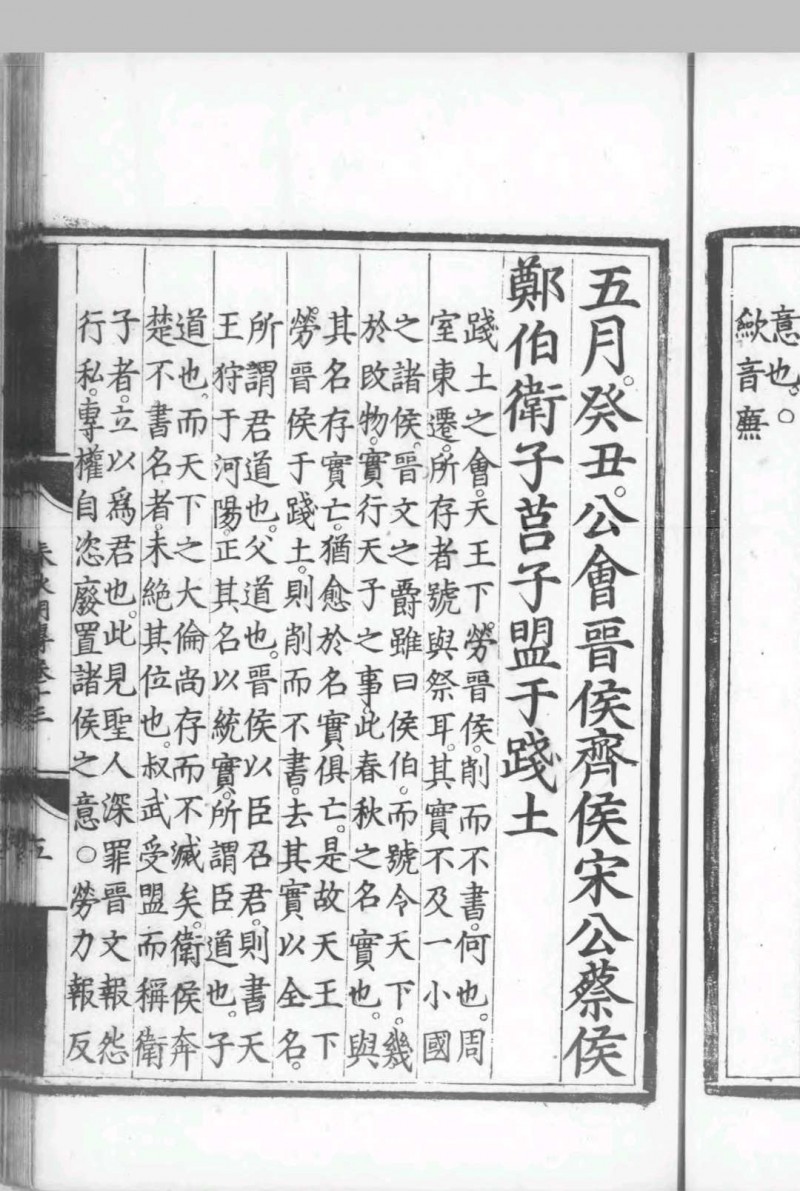 意也。○
歛音
五月。癸丑。公會晉侯齊侯宋公蔡侯
鄭伯衛子莒子盟于踐土
踐土之會。天王下勞晉侯。削而不書。何也。周
室東遷。所存者號與祭耳。其實不及一小國
之諸侯。晉文之爵雖曰侯伯。而號令天下。幾
於改物。實行天子之事。此春秋之名實也。與
其名存實亡。猶愈於名實俱亡。是故天王下
勞晉侯于踐土。則削而不書。去其實以全名。
所謂君道也。父道也。晉侯以臣召君。則書天
王狩于河陽。正其名以統實。所謂臣道也。子
道也。而天下之大倫尚存而不滅矣。衛侯奔
楚不書名者。未絕其位也。叔武受盟而稱衛
子者。立以爲君也。此見聖人深罪晉文報怨
行私。專權自恣廢置諸侯之意。○勞力報反
卷十三
五